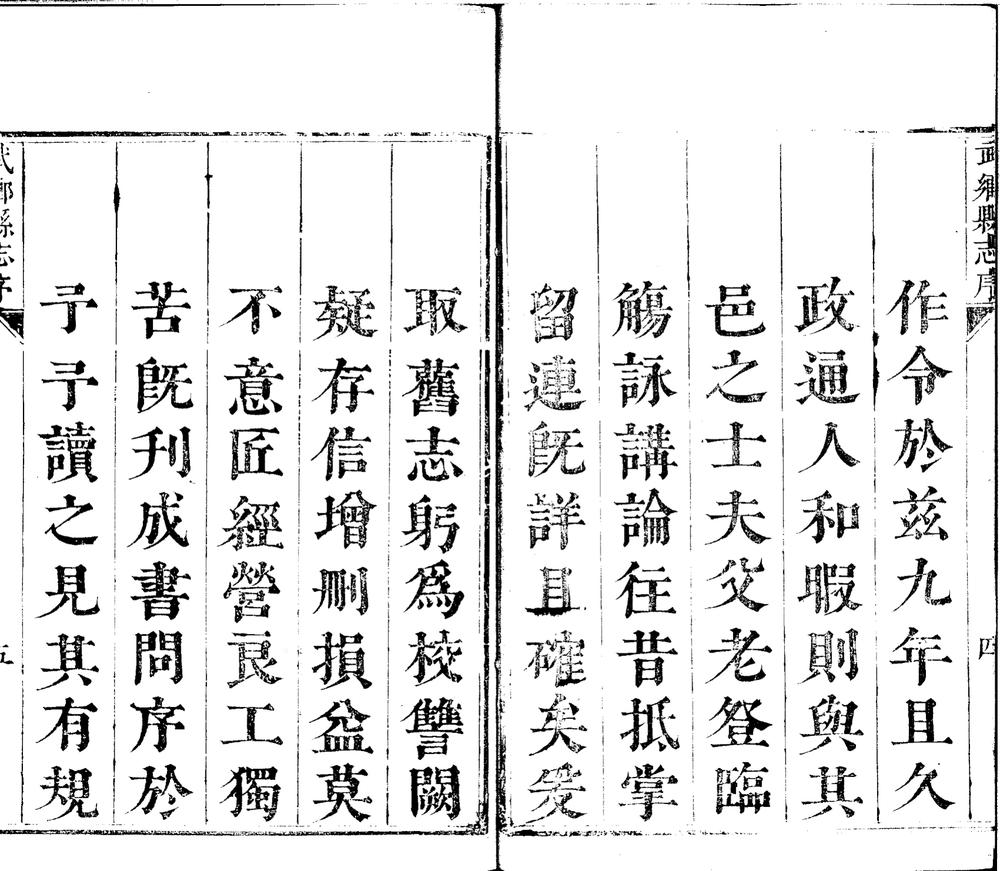 武鄉縣志序
四
作令於茲九年且久
政通人和暇則與其
邑之士夫父老登臨
觴詠講論往昔抵掌
留連旣詳且確矣爰
取舊志躬為校讐闕
疑存信增刪損益莫
不意匠經營良工獨
苦旣刊成書問序於
予予讀之見其有規
武鄉縣志序
五